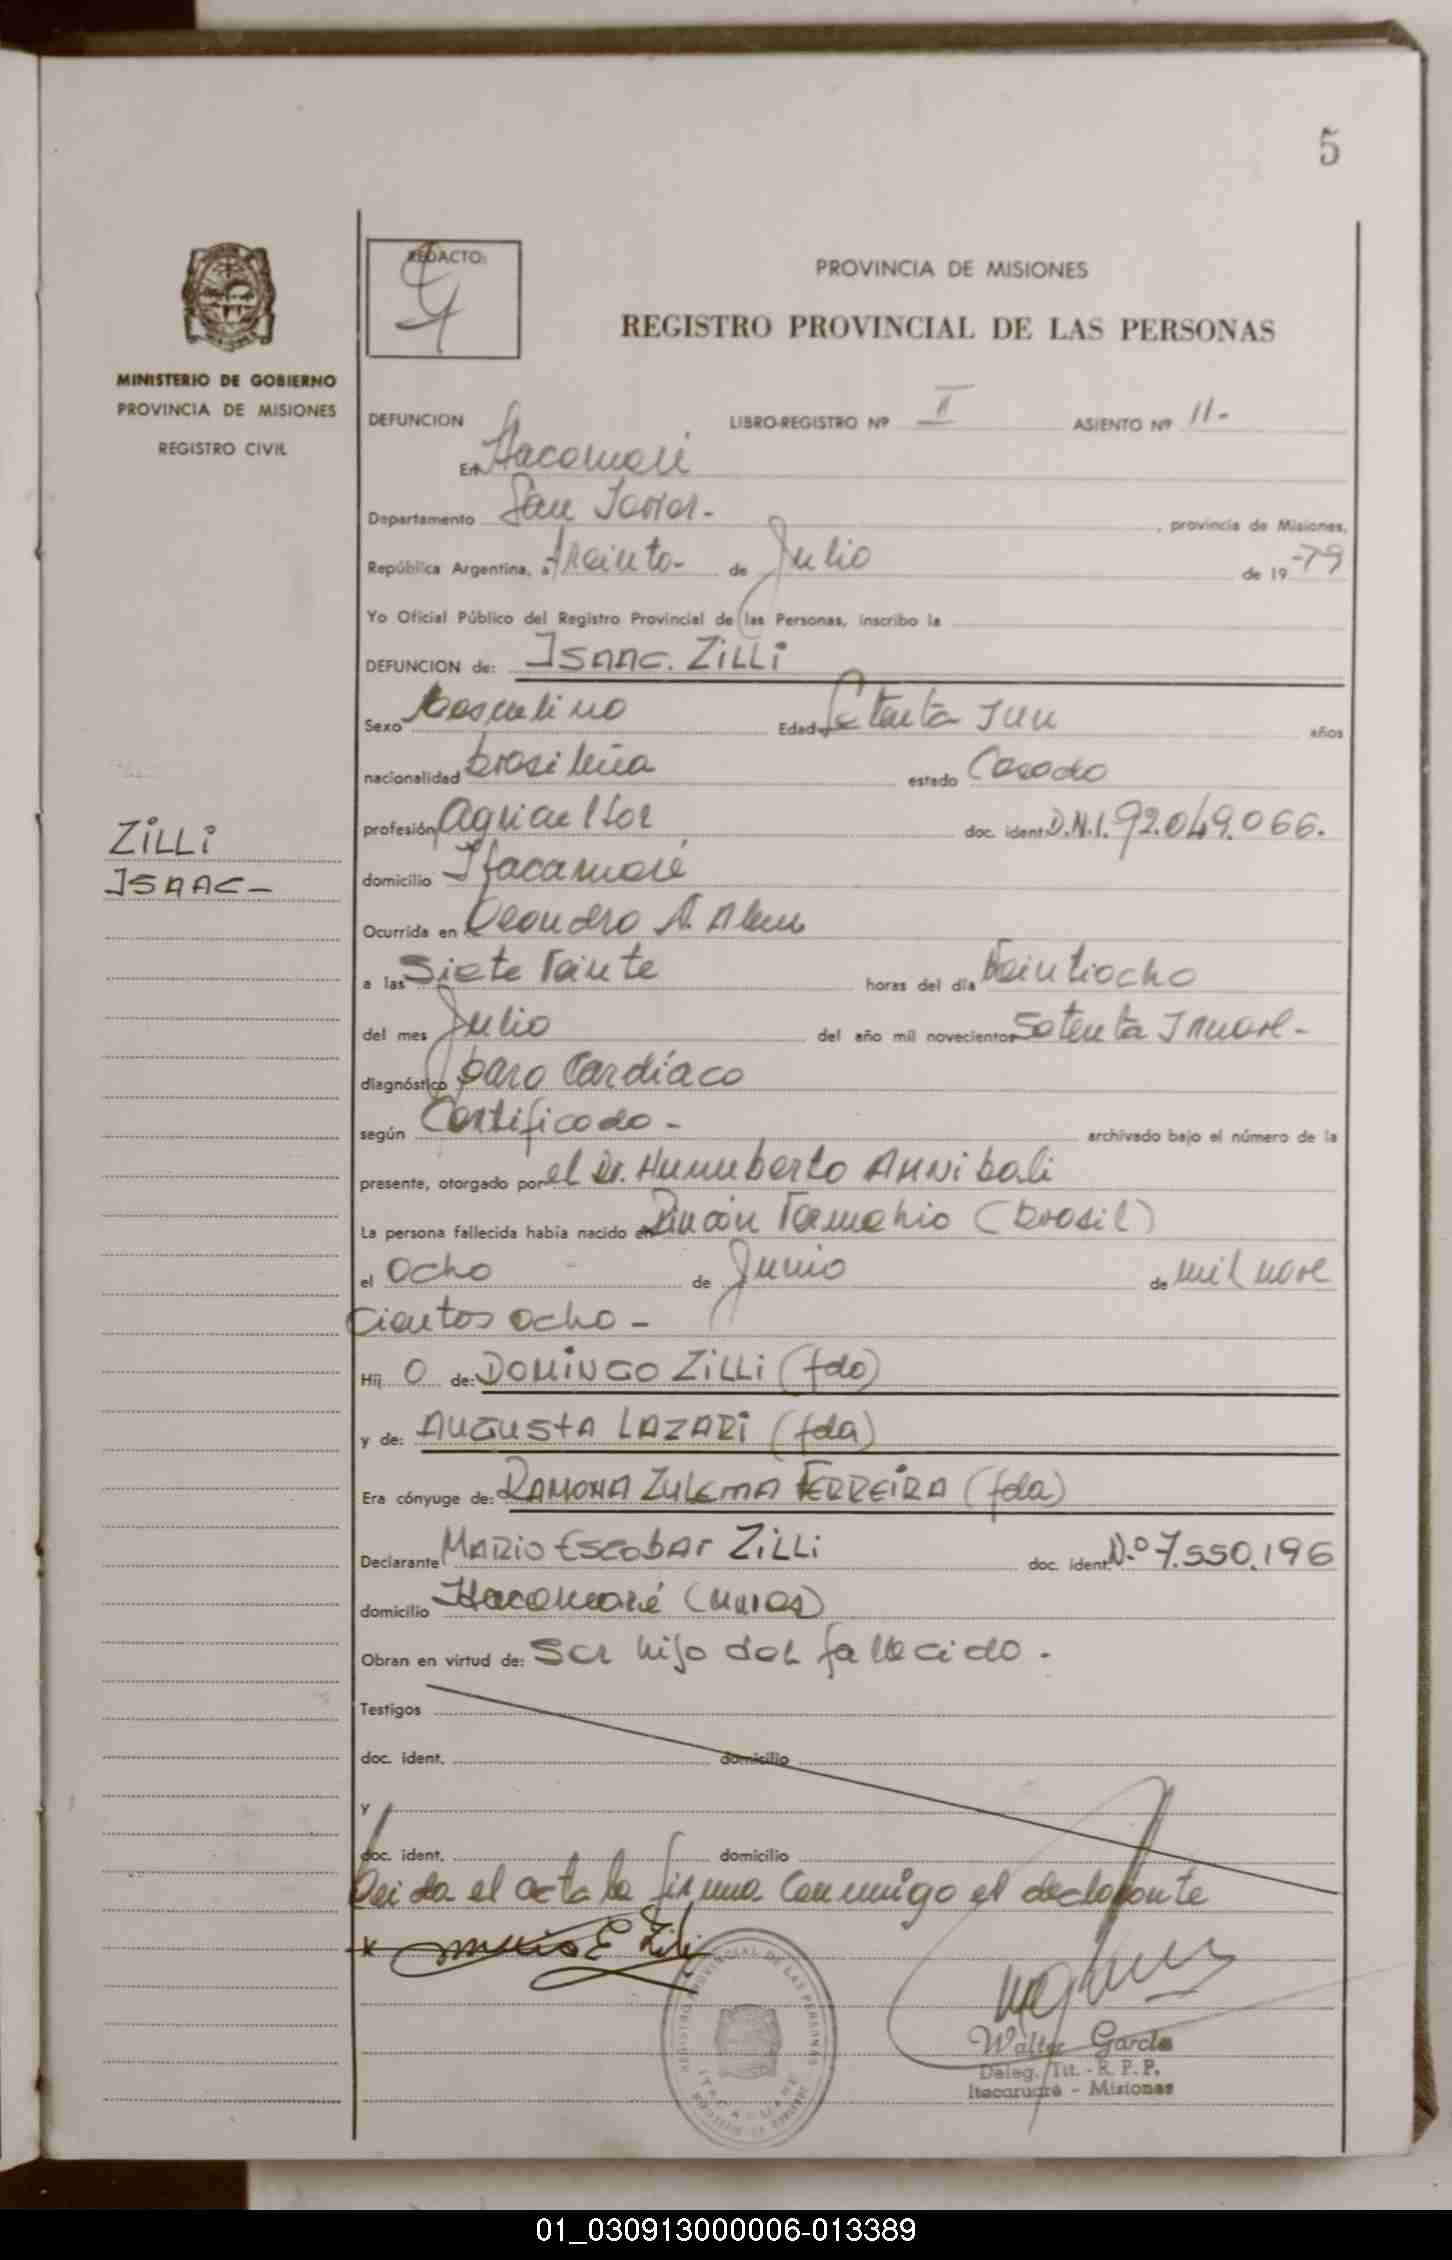 5
REDACTO:
PROVINCIA DE MISIONES
REGISTRO PROVINCIAL DE LAS PERSONAS
MINISTERIO DE GOBIERNO
PROVINCIA DE MISIONES
REGISTRO CIVIL
DEFUNCION LIBRO-REGISTRO Nº II ASIENTO Nº 11-
En Itacaruaré
Departamento San Javier- , provincia de Misiones,
República Argentina, a treinta- de Julio de 19 -79
Yo Oficial Público del Registro Provincial de las Personas, inscribo la
DEFUNCION de: ISAAC. ZILLI
Sexo Masculino Edad Setenta Iun años
nacionalidad brasileña estado Casado
profesión agricultor doc. ident. D.N.I. 92.049.066.
ZILLI
ISAAC-
domicilio Itacaruaré
Ocurrida en Leandro N. Alem
a las Siete Veinte horas del día Veintiocho
del mes Julio del año mil novecientos Setenta Inueve-
diagnóstico paro Cardíaco
según Certificado- archivado bajo el número de la
presente, otorgado por el Dr. Humberto ANNibali
La persona fallecida había nacido en Rincón (brasil)
el ocho de Junio de mil nove
cientos ocho-
Hij O de: DOMINGO ZILLI (fdo)
y de: AUGUSTA LAZARI (fda)
Era cónyuge de: RAMONA ZULEMA FERREIRA (fda)
Declarante MARIO ESCOBAR ZILLI doc. ident. N.º 7.550.196
domicilio Itacaruaré (Mnes)
Obran en virtud de: ser hijo del fallecido.
Testigos
doc. ident. domicilio
y
doc. ident. domicilio
Leida el acta la firma Conmigo el declarante
x Mario E Zilli
REGISTRO PROVINCIAL DE LAS PERSONAS
ITACARUARE
Walter García
Deleg. Tit. - R. P. P.
Itacaruaré - Misiones
01_030913000006-013389